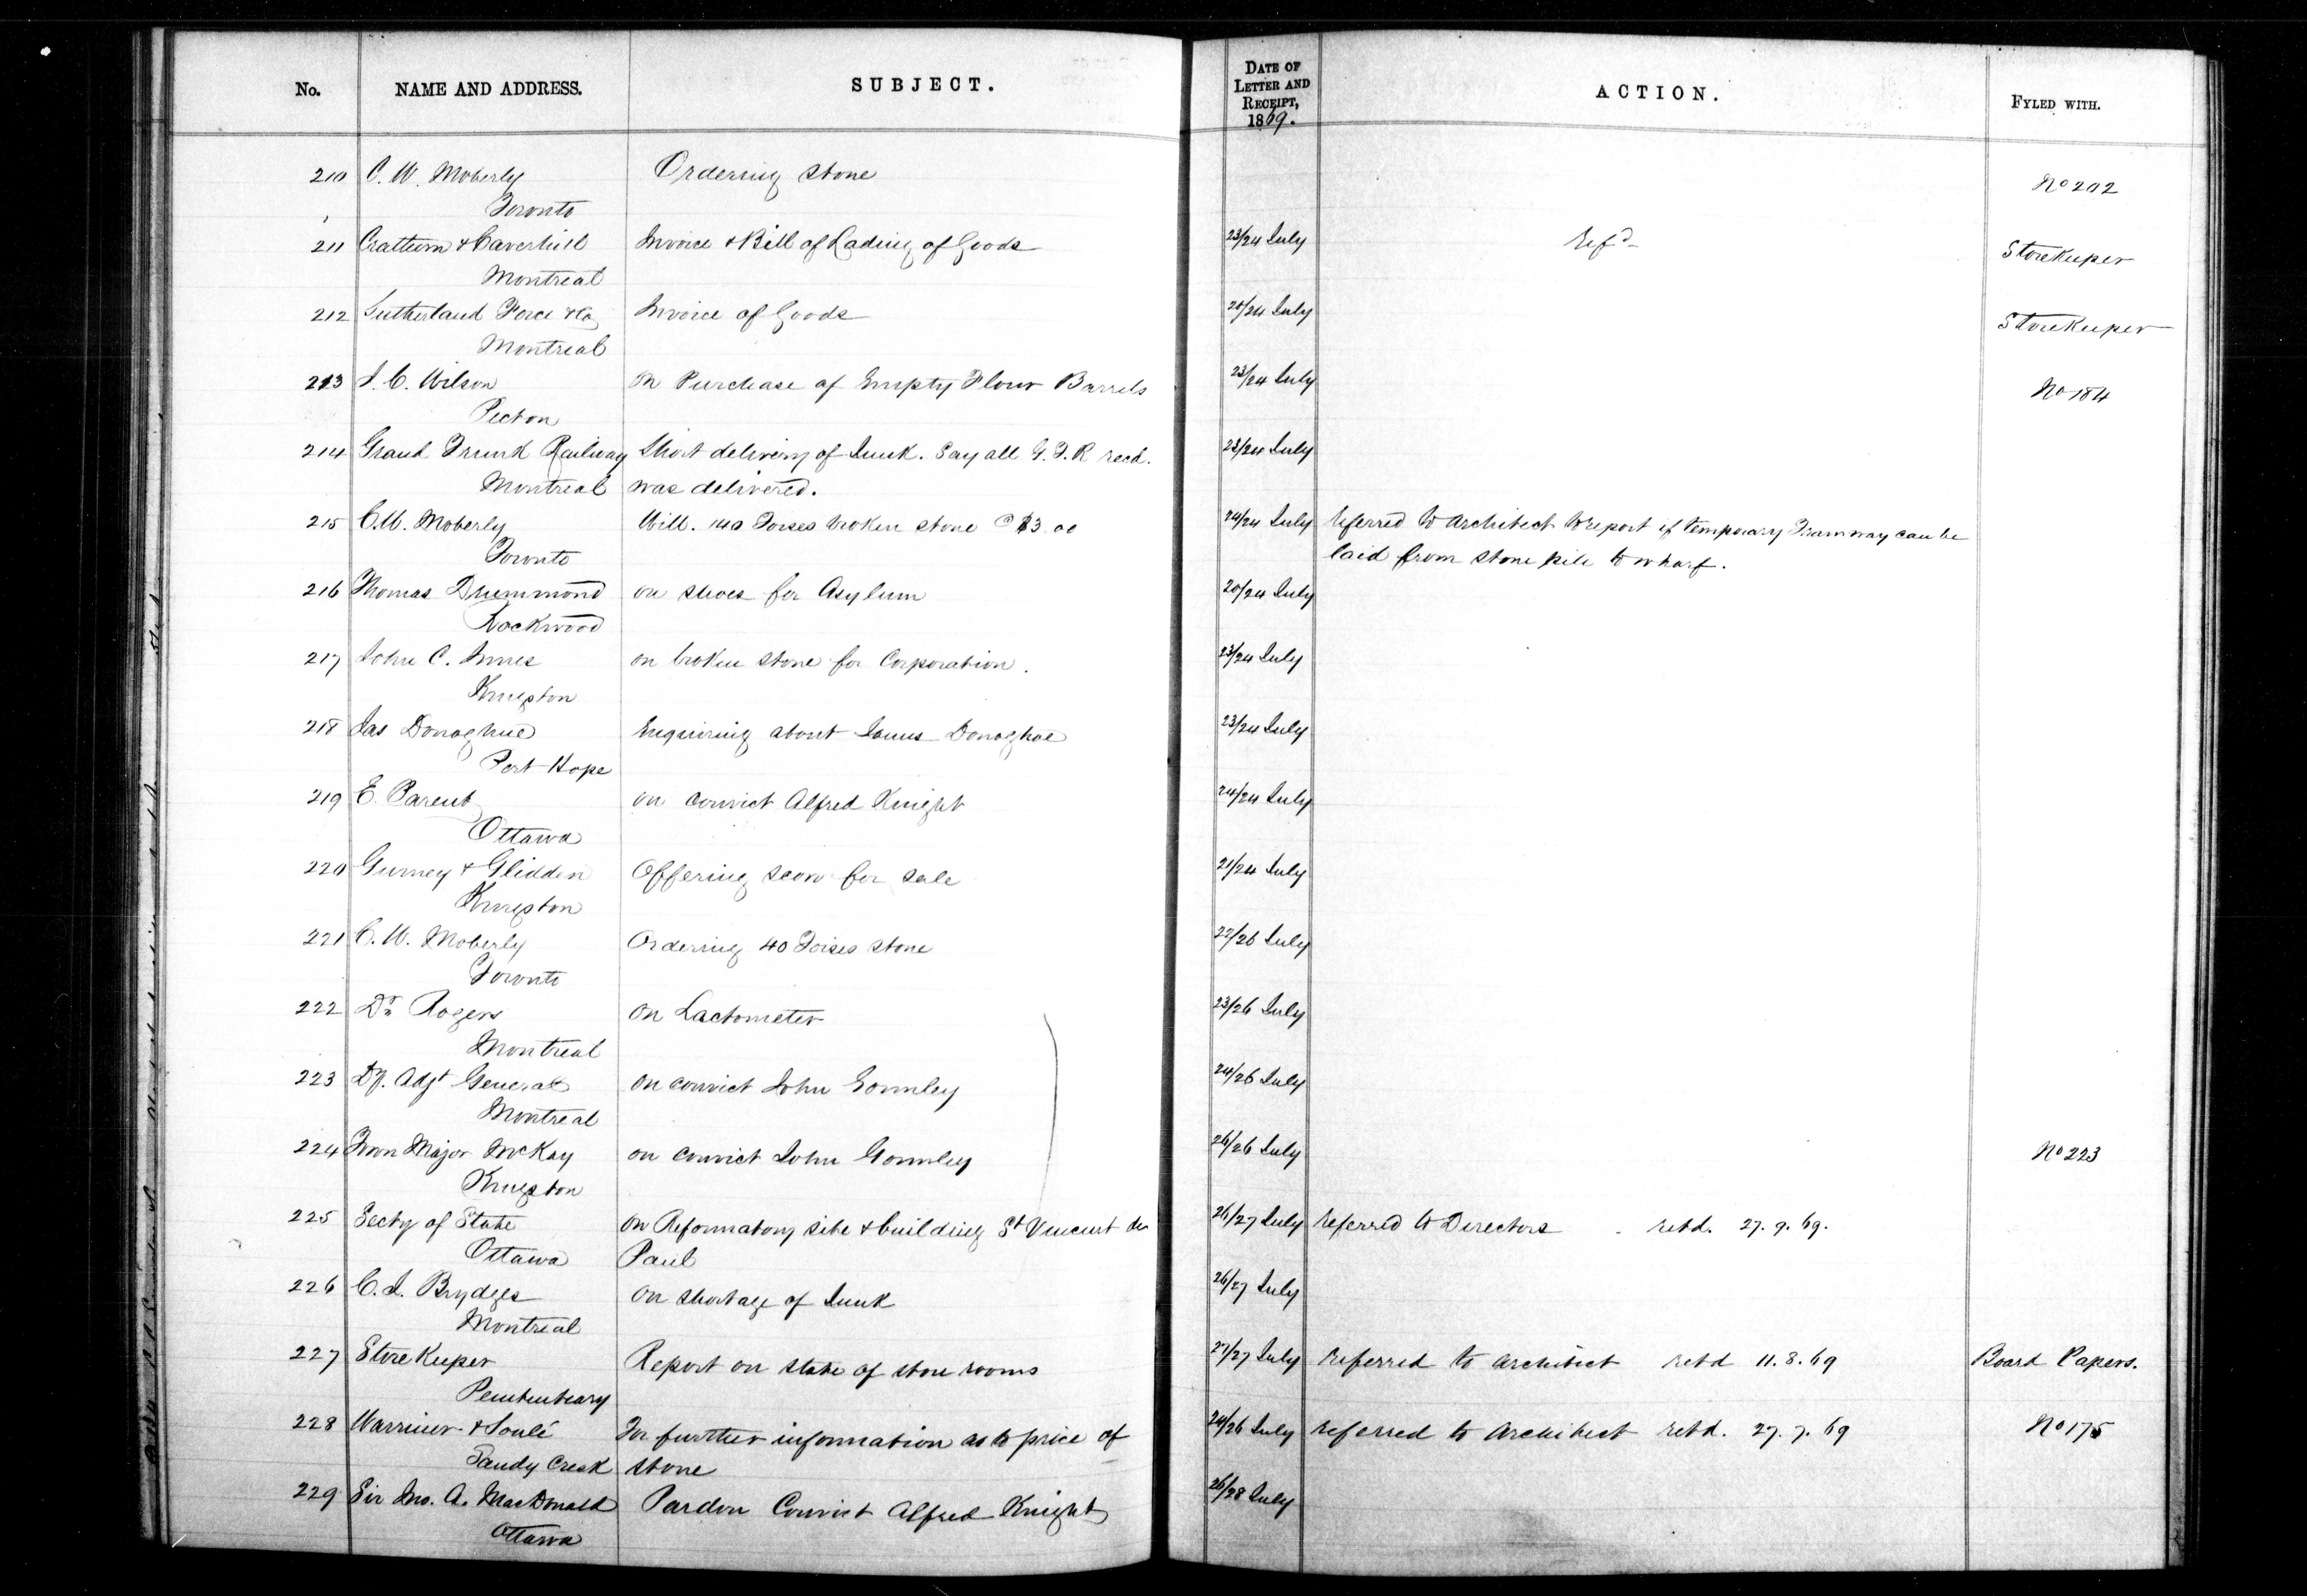 No. NAME AND ADDRESS. SUBJECT. DATE OF LETTER AND RECEIPT, 1869. ACTION. FYLED WITH.
210 C. W. Moberly Ordering stone No 202
Toronto
211 Crathern & Caverhill Invoice & Bill of Lading of Goods 23/24 July Refd Storekeeper
Montreal
212 Sutherland Force & Co Invoice of Goods 20/24 July Storekeeper
Montreal
213 J. C. Wilson on Purchase of Empty Flour Barrels 23/24 July No 184
Picton
214 Grand Trunk Railway Short delivery of Junk. Say all G. T. R recd. 23/24 July
Montreal was delivered.
215 C. W. Moberly Will. 140 Toises broken stone @ $3.00 24/24 July referred to Architect to report if temporary Tramway can be
Toronto laid from stone pile to wharf.
216 Thomas Drummond on shoes for Asylum 20/24 July
Rockwood
217 John C. Innes on broken stone for Corporation. 23/24 July
Kingston
218 Jas Donaghue Enquiring about James Donaghoe 23/24 July
Port Hope
219 E. Parent on convict Alfred Knight 24/24 July
Ottawa
220 Gurney & Glidden Offering scow for sale 21/24 July
Kingston
221 C. W. Moberly Ordering 40 Toises stone 22/26 July
Toronto
222 Dr Rogers on Lactometer 23/26 July
Montreal
223 Dy. Adjt General on convict John Gormley 24/26 July
Montreal
224 Town Major McKay on convict John Gormley 26/26 July No 223
Kingston
225 Secty of State on Reformatory site & building St Vincent de 26/27 July referred to Directors . retd. 27. 9. 69.
Ottawa Paul
226 C. J. Brydges on shortage of Junk 26/27 July
Montreal
227 Storekeeper Report on state of store rooms 27/27 July referred to architect retd 11. 8. 69 Board Papers.
Penitentiary
228 Warriner & Soulé For further information as to price of 24/26 July referred to Architect retd. 27. 7. 69 No 175
Sandy Creek stone
229 Sir Jno. A. MacDonald Pardon Convict Alfred Knight 26/28 July
Ottawa